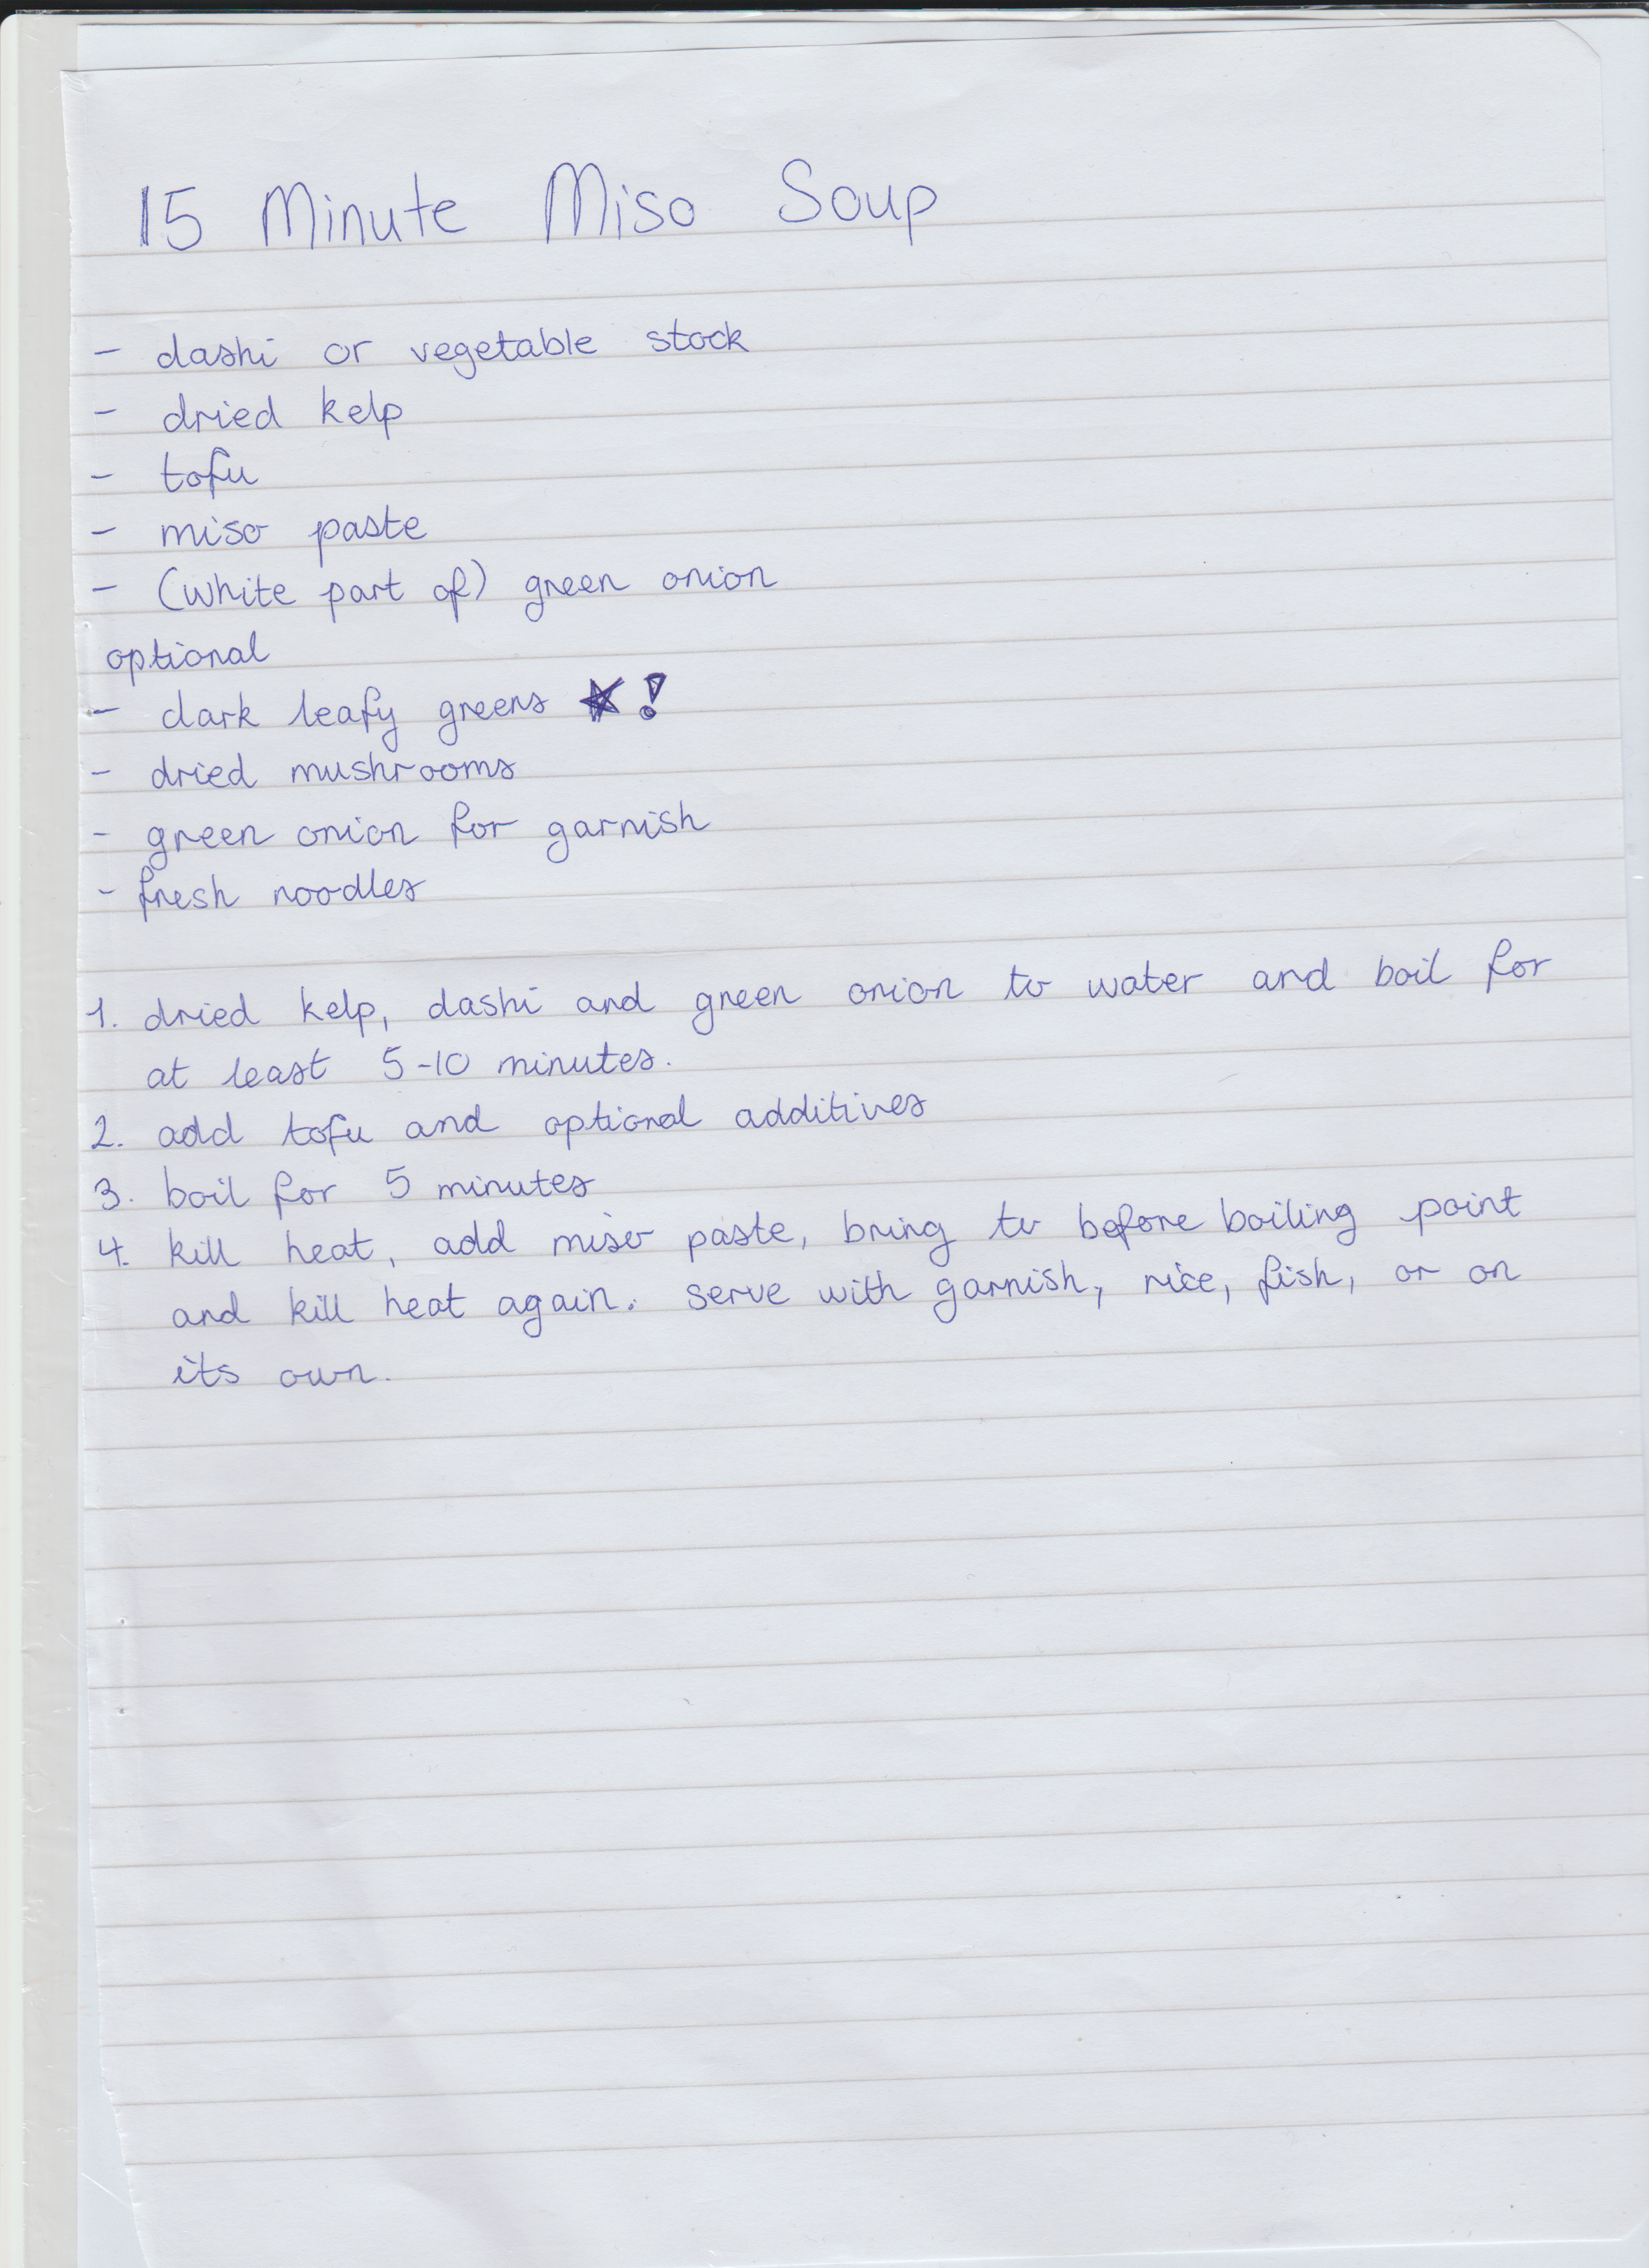 15 Minute Miso Soup
- dashi or vegetable stock
- dried kelp
- tofu
- miso paste
- (white part of) green onion
optional
- dark leafy greens ★!
- dried mushrooms
- green onion for garnish
- fresh noodles
1. dried kelp, dashi and green onion to water and boil for
at least 5-10 minutes.
2. add tofu and optional additives
3. boil for 5 minutes
4. kill heat, add miso paste, bring to before boiling point
and kill heat again. serve with garnish, rice, fish, or on
its own.